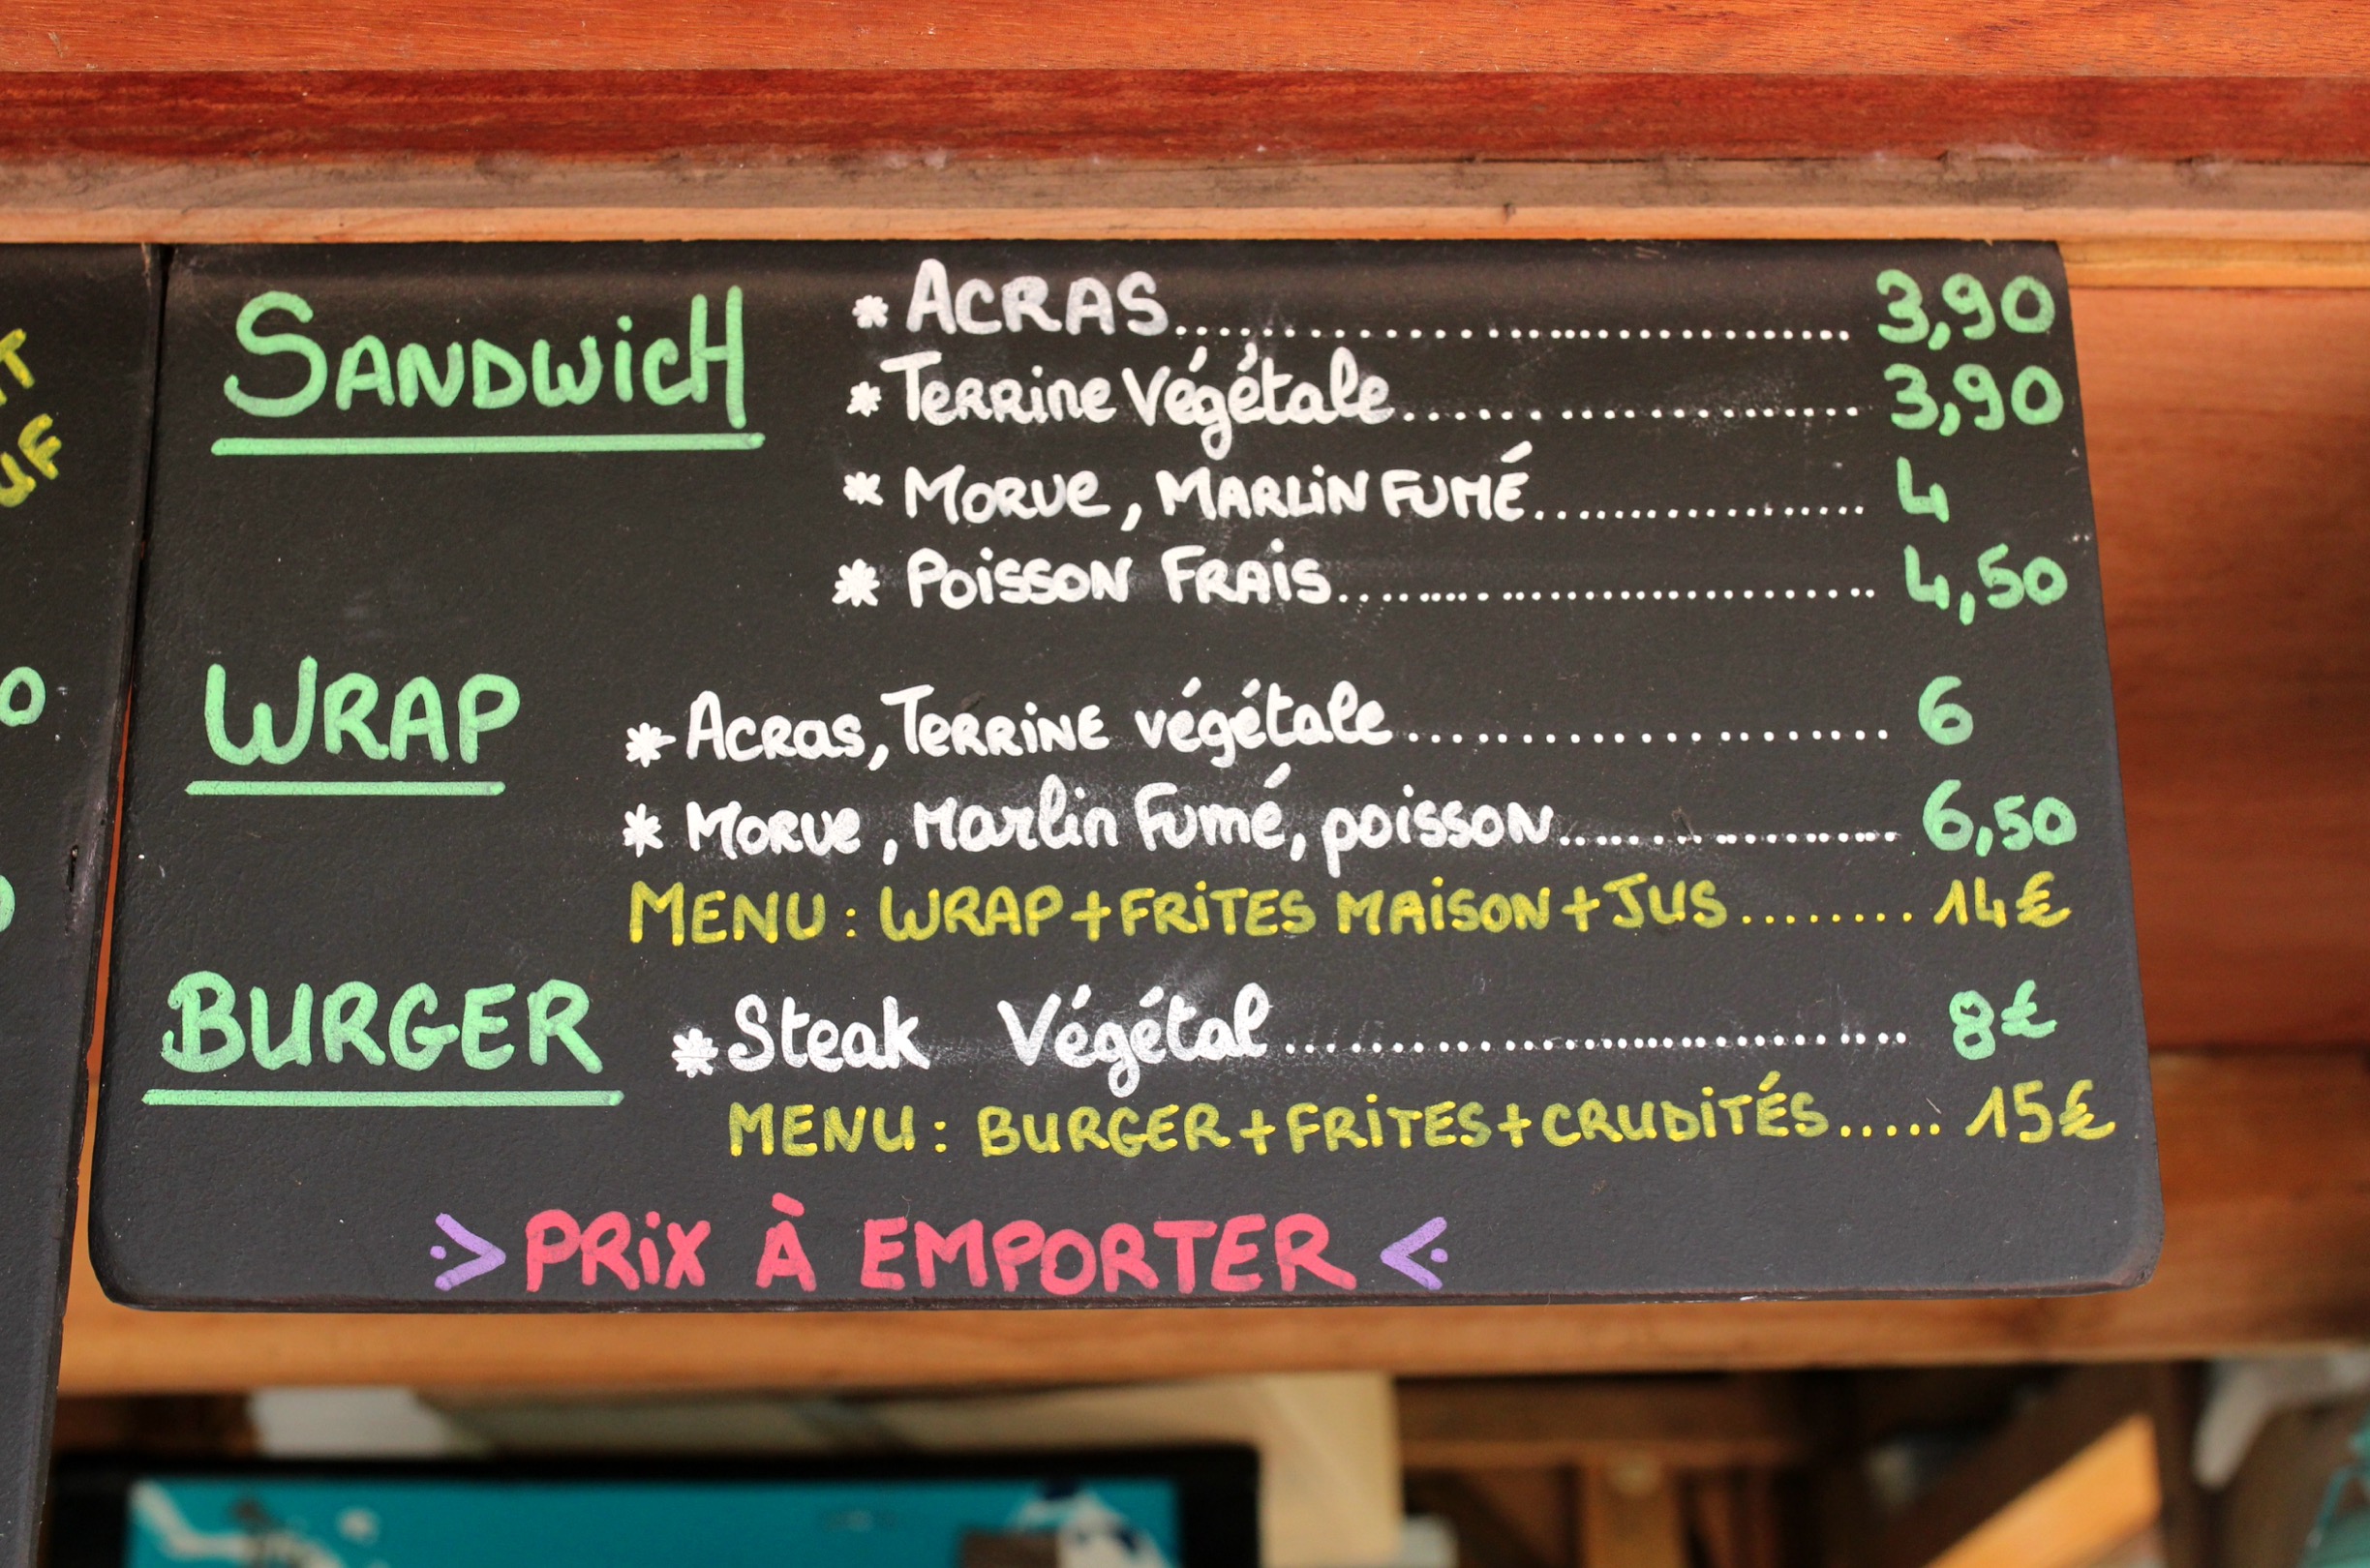 SANDWICH
* ACRAS........ 3,90
* Terrine Végétale........ 3,90
* Morue, Marlin Fumé........ 4
* Poisson Frais........ 4,50
WRAP
* Acras, Terrine végétale........ 6
* Morue, Marlin Fumé, poisson........ 6,50
MENU : WRAP+FRITES MAISON+JUS........ 14€
BURGER
* Steak Végétal........ 8€
MENU : BURGER+FRITES+CRUDITÉS..... 15€
PRIX À EMPORTER